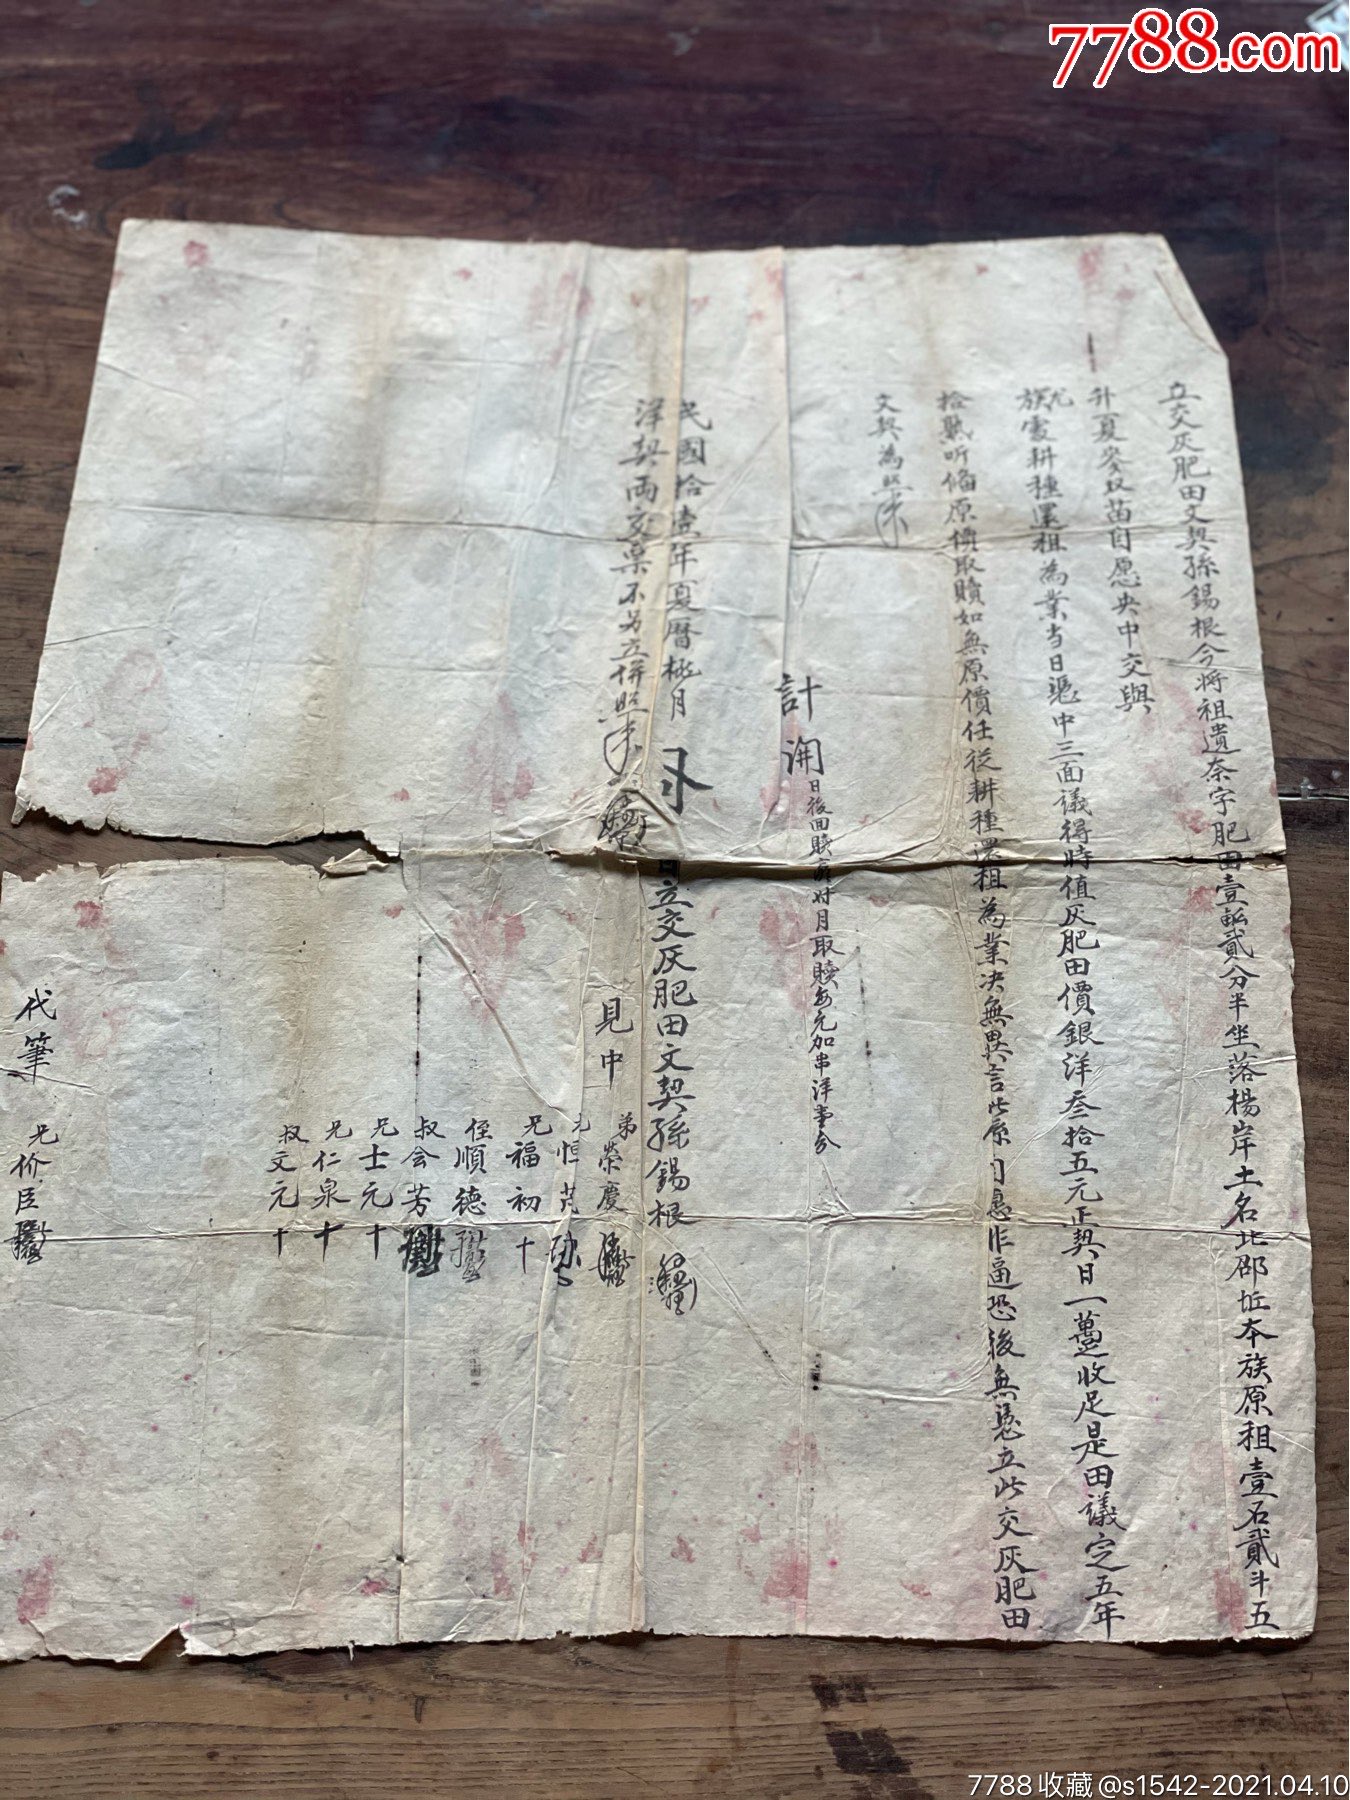 7788.com
立交灰肥田文契孫錫根今将祖遺奈字肥田壹畝貳分半坐落楊岸土名北邵坵本族原租壹石貳斗五
升夏麥奴苗自愿央中交與
族兄處耕種還租為業当日凴中三面議得時值灰肥田價銀洋叁拾五元正契日一躉收足是田議定五年
拾熟听俻原價取贖如無原價任從耕種還租為業决無異言此係自愿非逼恐後無凴立此交灰肥田
文契為照
計開
日後回贖對月取贖每元加串洋壹分
民國拾壹年夏曆桃月 日立交灰肥田文契孫錫根
洋契両交票不另立併照
見中
弟榮慶
兄恒芃
兄福初十
侄順德
叔会芳
兄士元十
兄仁泉十
叔文元十
代筆 兄价臣
7788收藏@s1542-2021.04.10